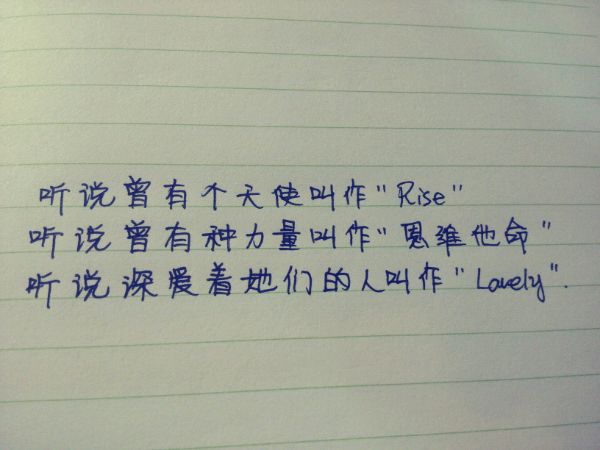 听说曾有个天使叫作"Rise"
听说曾有种力量叫作"恩维他命"
听说深爱着她们的人叫作"Lovely".